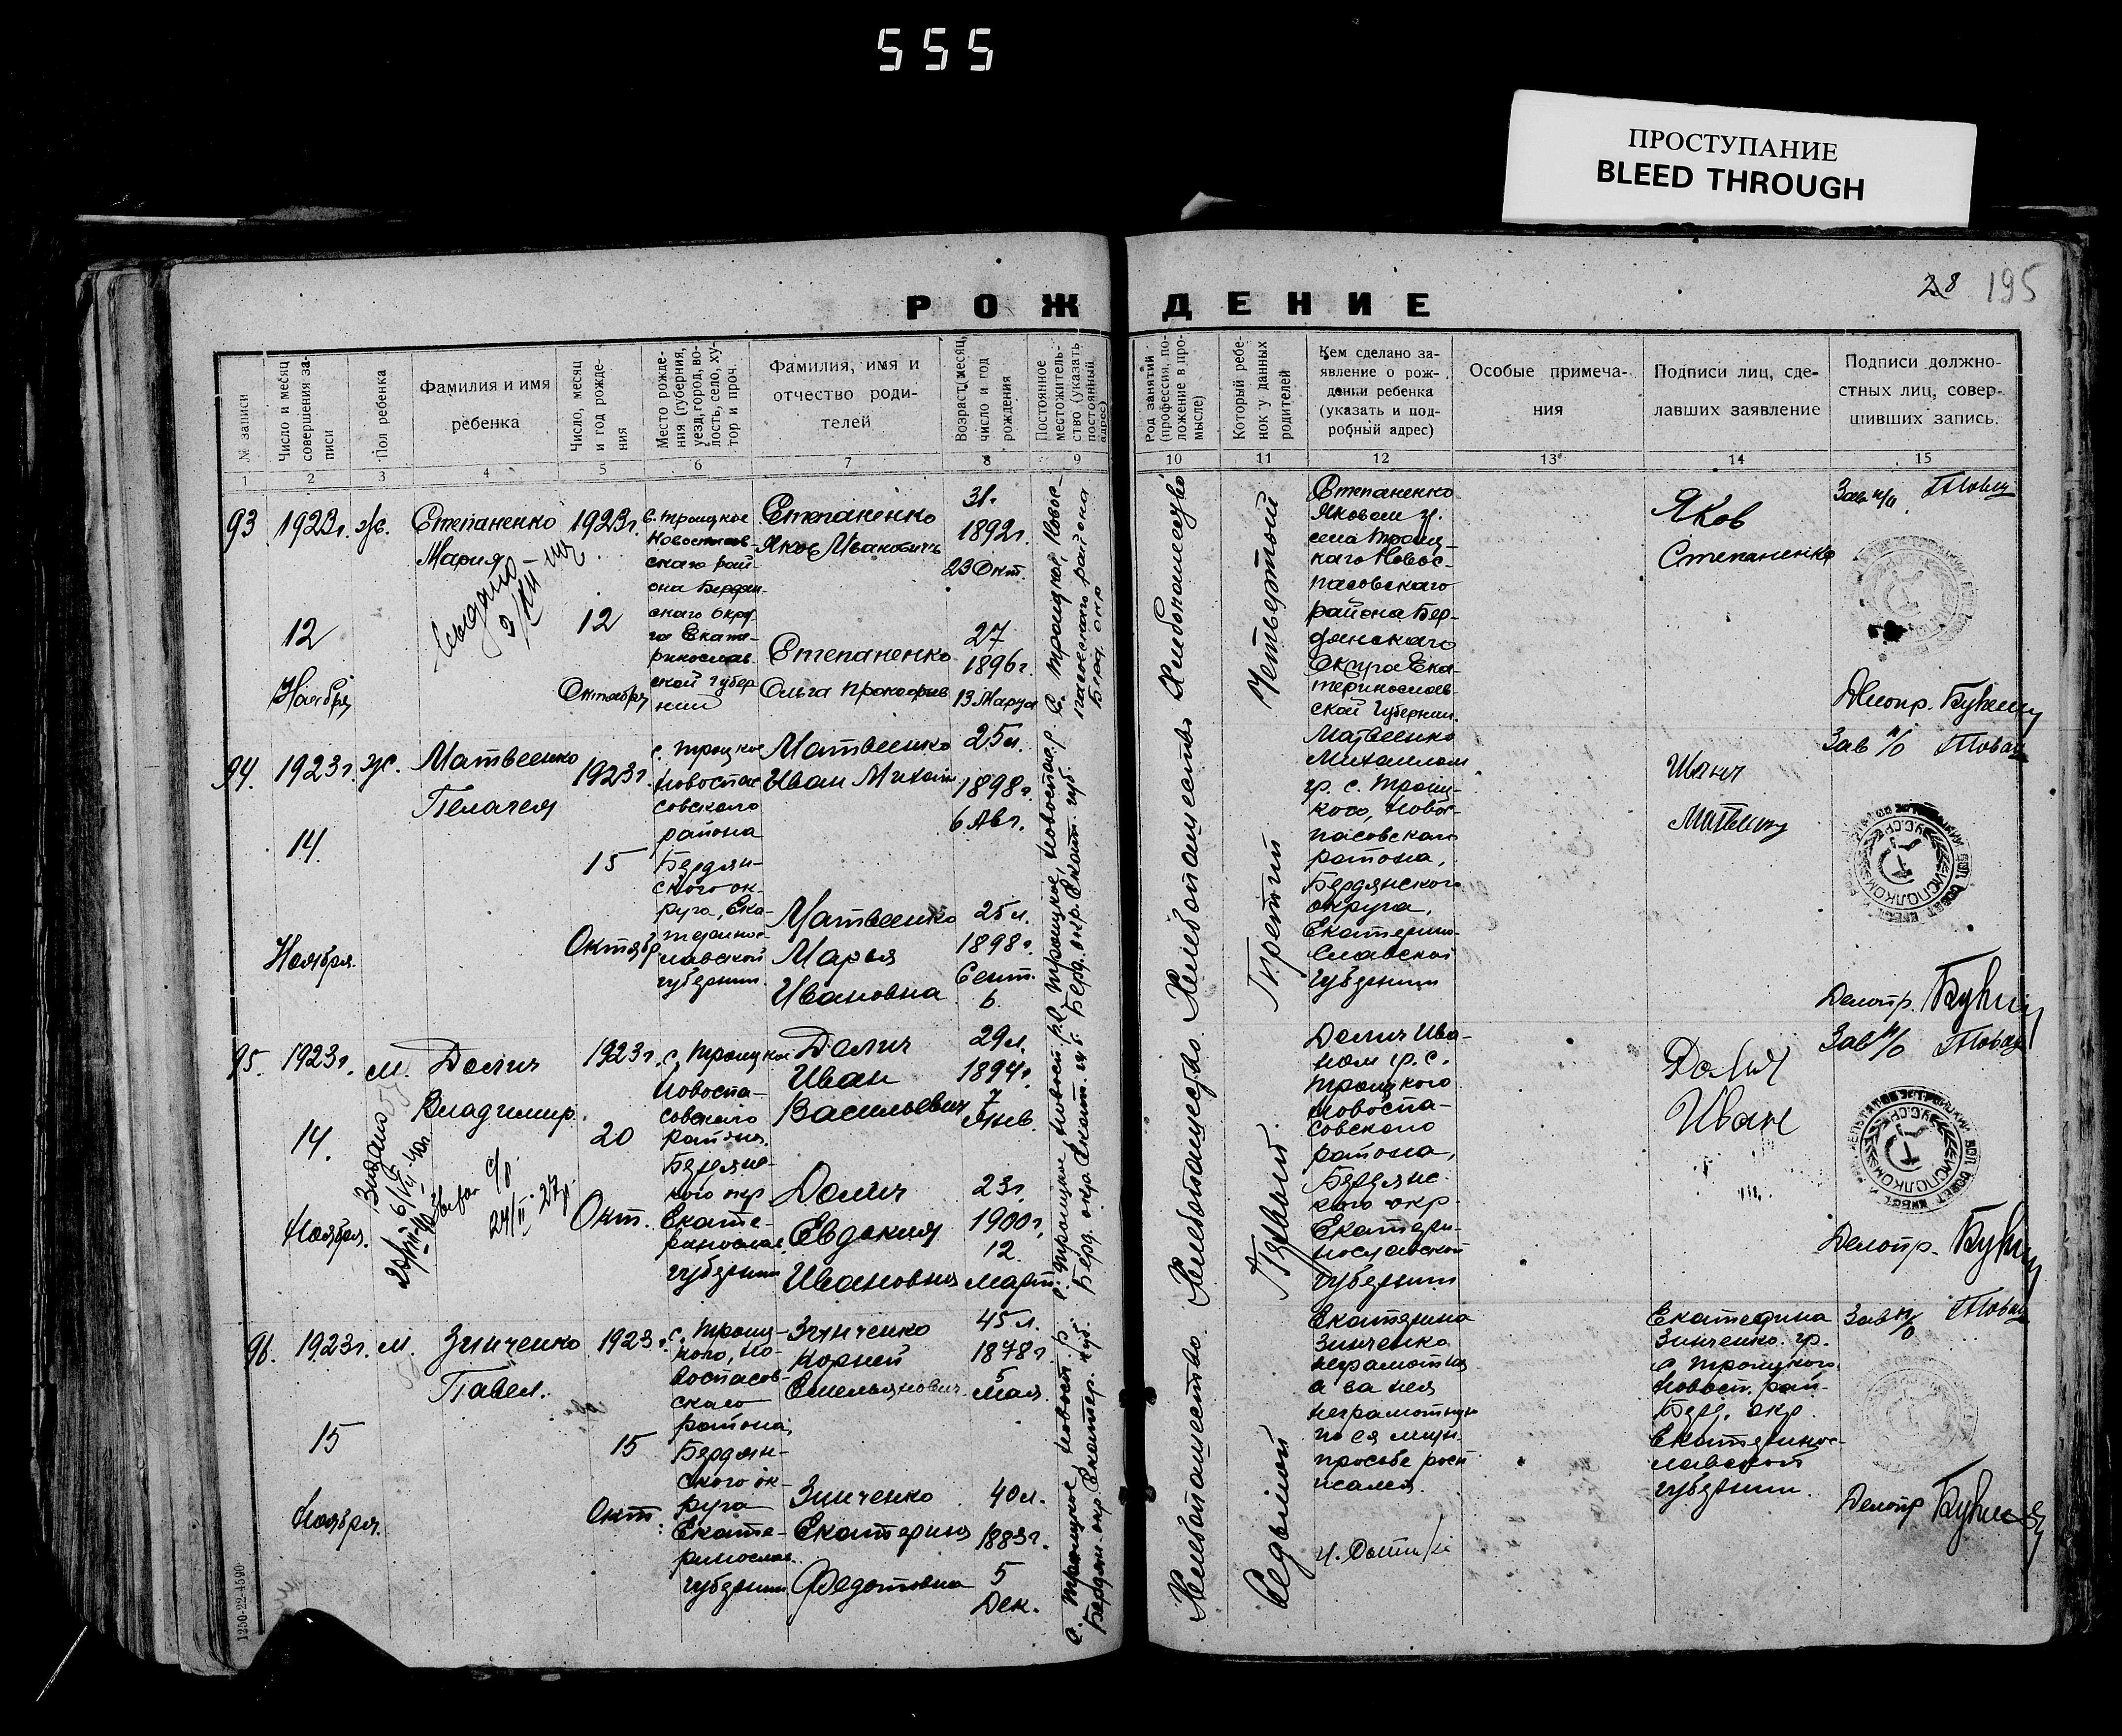 555
ПРОСТУПАНИЕ
BLEED THROUGH
28 195
РОЖДЕНИЕ
№ записи
Число и месяц совершения записи
Пол ребенка
Фамилия и имя
ребенка
Число, месяц
и год рожде-
ния
Место рожде-
ния (губерния,
уезд, город, во-
лость, село, ху-
тор и проч.
Фамилия, имя и
отчество роди-
телей
Возраст, месяц,
число и год
рождения
Постоянное
местожитель-
ство (указать
постоянный
адрес)
Род занятий
(профессия, по-
ложение в про-
мысле)
Который ребе-
нок у данных
родителей
Кем сделано за-
явление о рож-
дении ребенка
(указать и под-
робный адрес)
Особые примеча-
ния
Подписи лиц, сде-
лавших заявление
Подписи должно-
стных лиц, совер-
шивших запись.
1 2 3 4 5 6 7 8 9 10 11 12 13 14 15
93
1923г.
12
Ноября
ж.
Степаненко
Мария
1923г.
12
Октября
с. Троицкое
Новоспасов-
скаго рай-
она Бердян-
скаго Окру-
га Екате-
ринослав
ской Губер
нии
Степаненко
Яков Иванович
Степаненко
Ольга Прокофьев
31.
1892г.
23 Окт.
27
1896г.
13 Марта
Хлебопашество
Четвертый
Степаненко
Яковом гр.
села Троиц-
каго Новос-
пасовскаго
района Бер-
дянскаго
Округа Ека-
теринослав-
ской Губернии.
Яков
Степаненко
Зав п/о
Делопр.
94.
1923г.
14.
Ноября.
ж.
Матвеенко
Пелагея
1923г.
15
Октябр
с. Троцкое
Новоспас
совского
района
Бердян-
ского ок-
руга, Ека-
теринос-
лавской
губернии.
Матвеенко
Иван Михайл
Матвеенко
Марья
Ивановна
25л.
1898г.
6 Авг.
25л.
1898г.
Сент.
6.
Хлебопашество
Третий
Матвеенко
Михаилом
гр. с. Троиц-
кого, Новос-
пасовского
района,
Бердянского
округа,
Екатерино-
славской
губернии
Зав п/о
Делопр.
95.
1923г.
14.
Ноября.
м.
Долич
Владимир.
1923г.
20
Окт.
с. Троицкое
Новоспа-
совского
района.
Бердянс-
кого окр
Екате-
ринослав.
губернии
Долич
Иван
Васильевич
Долич
Евдокия
Ивановна
29л.
1894г.
7
Янв.
23г.
1900г.
12
март.
Хлебопашество.
Первый.
Долич Ива-
ном гр. с.
Троицкого
Новоспа-
совского
района,
Бердянс-
кого окр.
Екатери-
нославской
губернии
Долич
Иван
Зав п/о
Делопр.
96.
1923г.
15
Ноября.
м.
Зинченко
Павел.
1923г.
15
Окт.
с. Троиц-
кого, Но-
воспасов-
скаго
района,
Бердян-
ского ок-
руга
Екате-
ринослав.
губернии.
Зинченко
Корней
Емельянович.
Зинченко
Екатерина
Федотовна
45л.
1878г.
5
мая.
40л.
1883г.
5
Дек.
Хлебопашество.
Седьмой
Екатерина
Зинченко
неграмотна
а за нея
неграмотную
по ея личн.
просьбе росп
исался.
Екатерина
Зинченко. гр.
с. Троицкого.
Новосп. рай-
Берд. окр.
Екатеринос-
лавской
губернии.
Зав п/о
Делопр
1250-22-4590